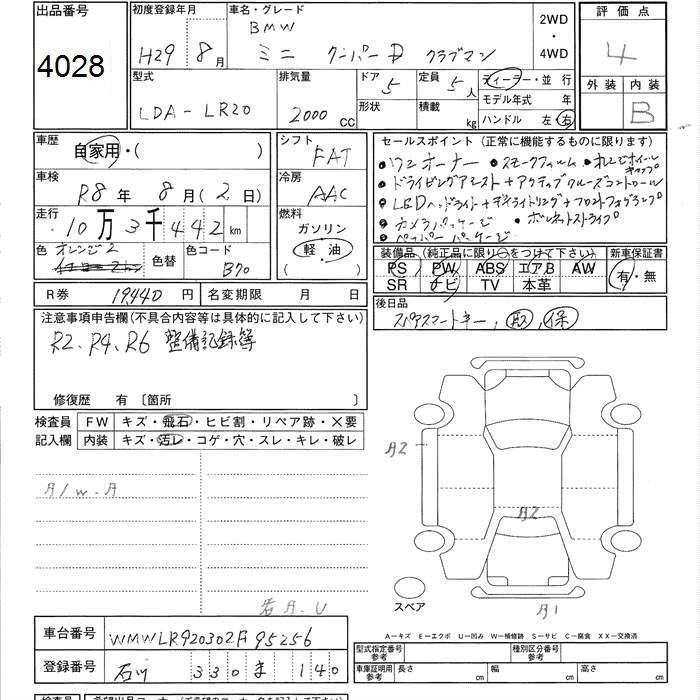 出品番号 初度登録年月 車名・グレード 2WD・4WD 評価点
4028 H29 8月 BMW ミニ クーパーD クラブマン 4
型式 排気量 ドア 5 定員 5人 ディーラー・並行 外装 内装
LDA-LR20 2000cc 形状 積載 kg モデル年式 年 B
ハンドル 左 右
車歴 自家用・( ) シフト FAT セールスポイント (正常に機能するものに限ります)
車検 R8年 8月(2日) 冷房 AAC
・ワンオーナー ・スモークフィルム ・オレンジホイールキャップ
・ドライビングアシスト+アクティブクルーズコントロール
・LEDヘッドライト+デイライトリング+フロントフォグランプ
・カメラパッケージ ・ボンネットストライプ
・ペッパーパッケージ
走行 10万3千442km 燃料 ガソリン 軽・油
色 オレンジ2 色替 色コード B70
装備品 (純正品に限り○をつけて下さい) 新車保証書
PS PW ABS エアB AW 有・無
SR ナビ TV 本革
R券 19440円 名変期限 月 日
後日品
スペアスマートキー, 取, 保
注意事項申告欄(不具合内容等は具体的に記入して下さい)
R2、R4、R6 整備記録簿
修復歴 有 〔箇所 〕
検査員 FW キズ・飛石・ヒビ割・リペア跡・×要
記入欄 内装 キズ・汚レ・コゲ・穴・スレ・キレ・破レ
A/W・A
A2
A2
A1
スペア
若A.U
A-キズ E-エクボ U-凹み W-補修跡 S-サビ C-腐食 XX-交換済
車台番号 WMWLR920302F95256
登録番号 石川 330 ま 140
型式指定番号 参考 種別区分番号 参考
車庫証明用 参考 長さ cm 幅 cm 高さ cm